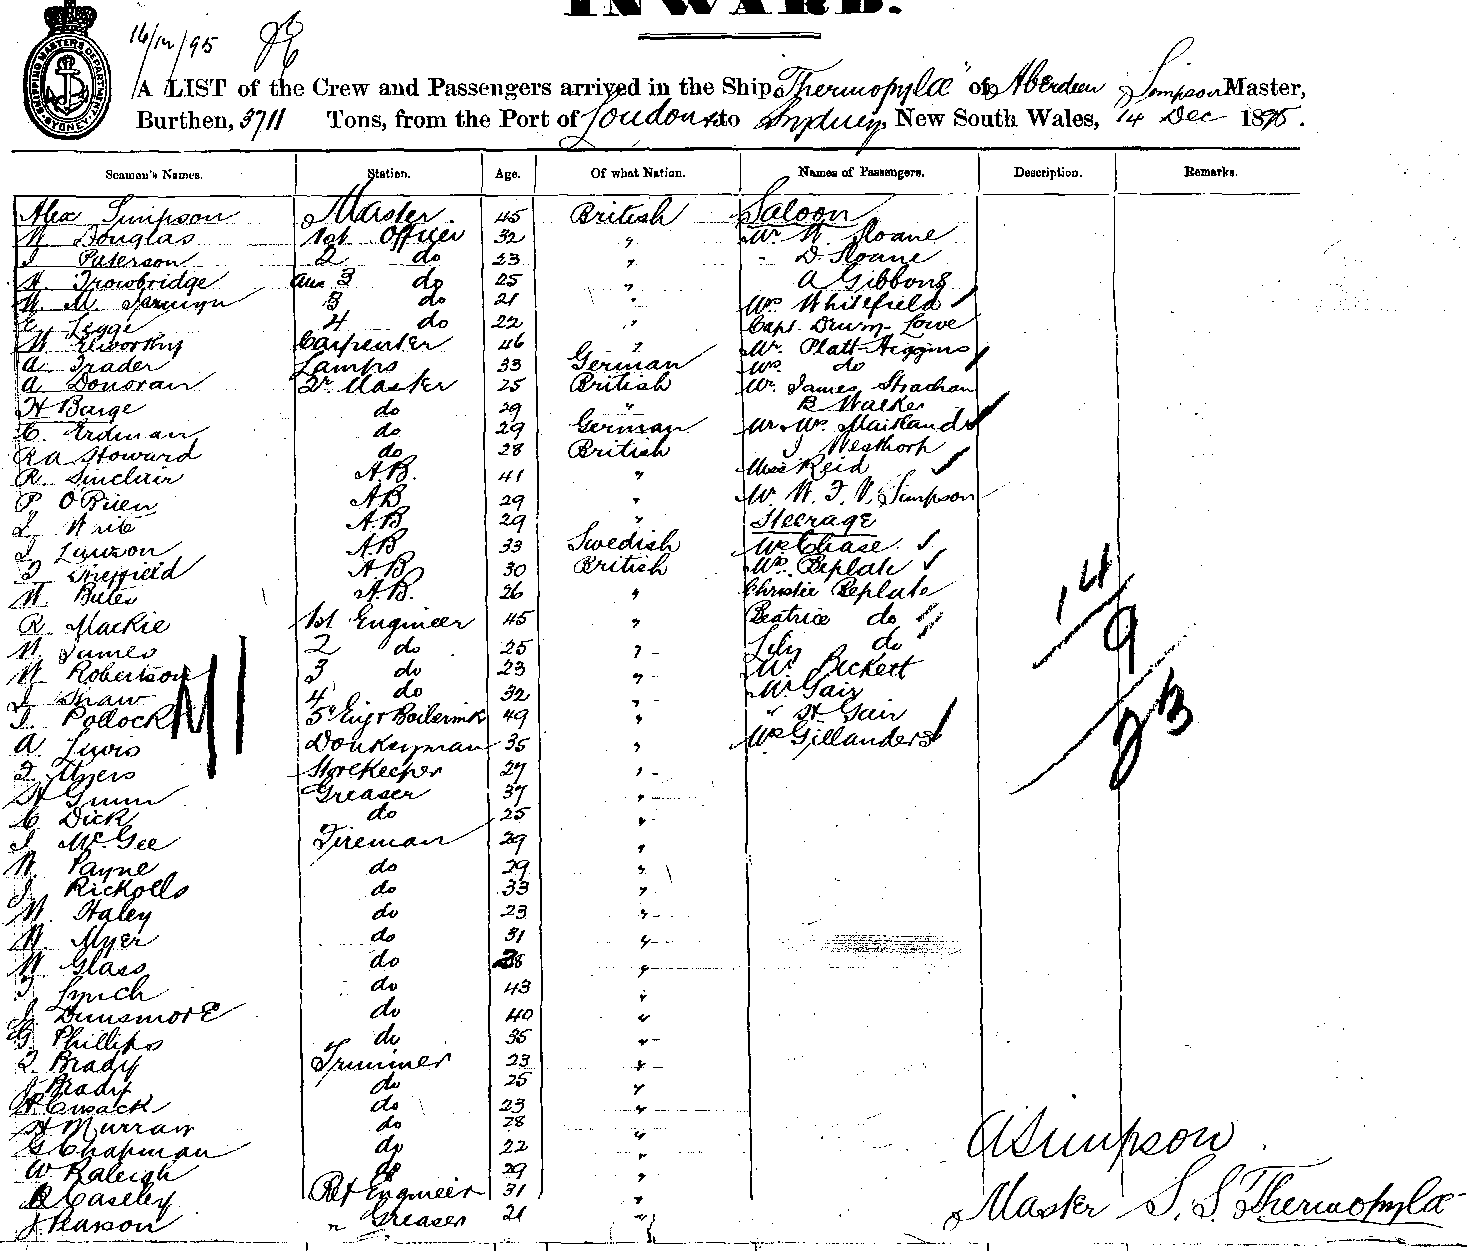 INWARD.
16/12/95
SHIPPING MASTERS DEPARTMENT SYDNEY
A LIST of the Crew and Passengers arrived in the Ship "Thermopylæ" of Aberdeen Simpson Master,
Burthen, 3711 Tons, from the Port of London to Sydney New South Wales, 14 Dec 1895.
Seaman's Names. Station. Age. Of what Nation. Names of Passengers. Description. Remarks.
Alex Simpson Master. 45 British Saloon
W Douglas 1st Officer 32 " Mr W. Sloane
J Paterson 2 do 23 " " D Sloane
H. Trowbridge Aux 3 do 25 " A Gibbons
W. M. 3 do 21 " Mrs Whitefield
E. Legge 4 do 22 " Capt. Drury-Lowe
W Elworthy Carpenter 46 " Mr. Platt-Higgins
A. Trader Lamps 33 German Mrs do
A Donovan Qr Master 25 British Mr. James Strachan
H Barge do 29 " B Walker
C. Erdman do 29 German Mr & Mrs. Maitland
R A Howard do 28 British J Westhorp
R. Sinclair A.B. 41 " Miss Reid
P. O'Brien AB 29 " Mr W. F. V. Simpson
A.B 29 " Steerage
J. Lawson AB 33 Swedish Mrs Chase
J Sheffield AB 30 British Mrs Replate
W Bates A.B. 26 " Christie Replate
R. Mackie 1st Engineer 45 " Beatrice do
W James 2 do 25 " Lily do
W Robertson 3 do 23 " Mr. Beckett
J Shaw 4 do 32 " Mr Gair
J. Pollock 5th Engr Boilermk 49 " " H Gair
A. Lewis Donkeyman 35 " Mrs Gillanders
J Myers Storekeeper 27 "
H Gunn Greaser 37 "
C Dick do 25 "
J McGee Fireman 29 "
W. Payne do 29 "
J. Rickolls do 33 "
W. Haley do 23 "
W. Myer do 31 "
W Glass do 28 "
J Lynch do 43 "
J. Dunsmore do 40 "
G. Phillips do 35 "
J. Brady Trimmer 23 "
J Brady do 25 "
H Cusack do 23 "
H Murray do 28 "
G Chapman do 22 "
W Raleigh do 29 "
R Caseley Ref Engineer 31 "
J Pearson " Greaser 21 "
14
9
23
A Simpson
Master S.S. Thermopylæ